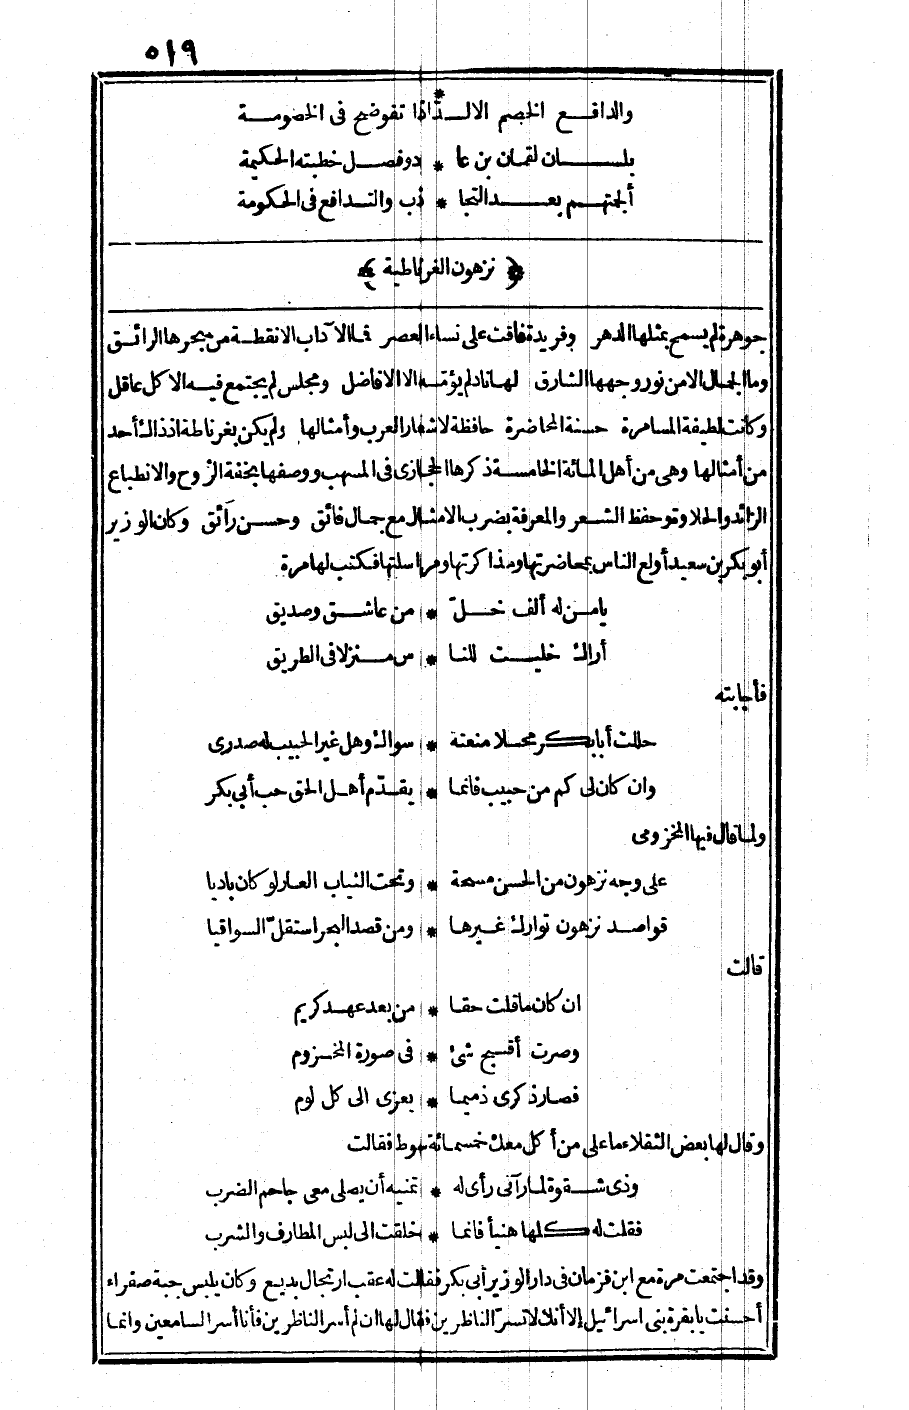 ٥١٩
والدافع الخصم الالد * اذا تفوضح فى الخصومة
بلسان لقمان بن عا * دو فصل خطبته الحكيمة
ألجمتهم بعد التجا * ذب والتدافع فى الحكومة
﴿ نزهون الغرناطية ﴾
جوهرة لم يسمح بمثلها الدهر وفريدة فاقت على نساء العصر فما الآداب الا نقطة من بحرها الرائق
وما الجمال الا من نور وجهها الشارق لها ناد لم يؤمه الا الافاضل ومجلس لم يجتمع فيه الا كل عاقل
وكانت لطيفة المسامرة حسنة المحاضرة حافظة لاشعار العرب وأمثالها ولم يكن بغرناطة اذ ذاك أحد
من أمثالها وهى من أهل المائة الخامسة ذكرها الحجازى فى المسهب ووصفها بخفة الروح والانطباع
الزائد والحلاوة وحفظ الشعر والمعرفة بضرب الامثال مع جمال فائق وحسن رائق وكان الوزير
أبو بكر بن سعيد أولع الناس بمحاضرتها ومذاكرتها ومراسلتها فكتب لها مرة
يامن له ألف خلّ * من عاشق وصديق
أراك خليت للنا * س منزلا فى الطريق
فأجابته
حللت أبا بكر محلا منعته * سواك وهل غير الحبيب له صدرى
وان كان لى كم من حبيب فانما * يقدّم أهل الحق حب أبى بكر
ولما قال فيها المخزومى
على وجه نزهون من الحسن مسحة * وتحت الثياب العار لو كان باديا
قواصد نزهون توارك غيرها * ومن قصد البحر استقلّ السواقيا
قالت
ان كان ماقلت حقا * من بعد عهد كريم
وصرت أقبح شئ * فى صورة المخزوم
فصار ذكرى ذميما * يعزى الى كل لوم
وقال لها بعض الثقلاء ما على من أكل معك خمسمائة سوط فقالت
وذى شقوة لما رآنى رأى له * تمنيه أن يصلى معى جاحم الضرب
فقلت له كلها هنيأ فانما * خلقت الى لبس المطارف والشرب
وقد اجتمعت مرة مع ابن قزمان فى دار الوزير أبى بكر فقالت له عقب ارتجال بديع وكان يلبس جبة صفراء
أحسنت يا بقرة بنى اسرائيل إلا أنك لا تسرّ الناظرين فقال لها ان لم أسر الناظرين فأنا أسر السامعين وانما